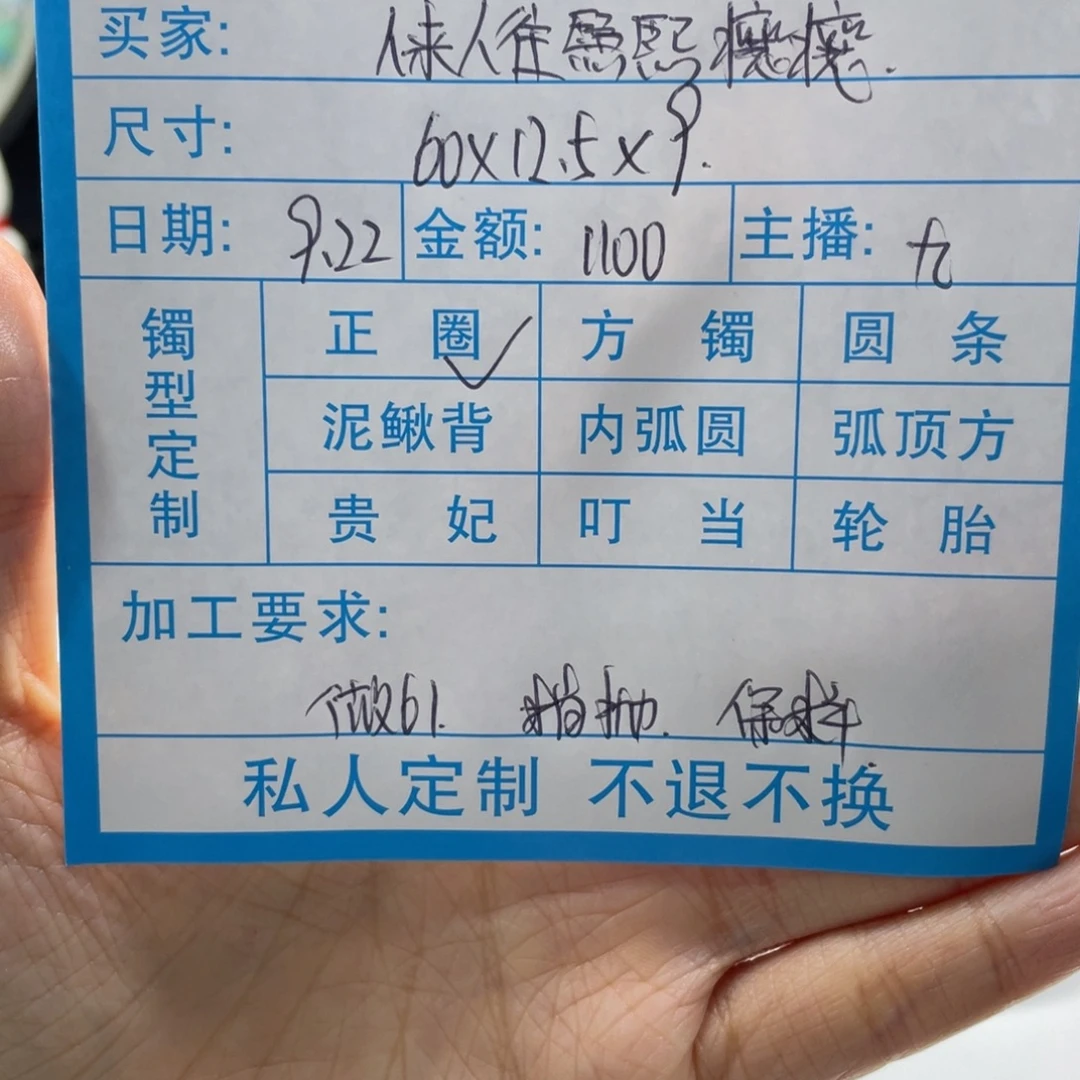 买家: 人来人往熙熙攘攘.
尺寸: 60x12.5x9.
日期: 9.22 金额: 1100 主播: 九
镯型定制
正圈✓ 方镯 圆条
泥鳅背 内弧圆 弧顶方
贵妃 叮当 轮胎
加工要求:
做61. 精抛. 保样.
私人定制 不退不换